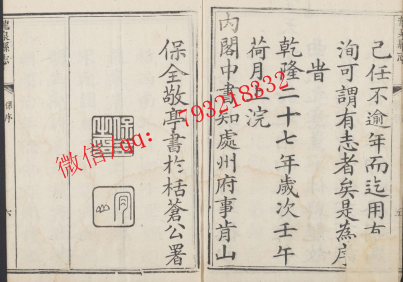 己任不逾年而迄用有
洵可謂有志者矣是為序
旹
乾隆二十七年歲次壬午
荷月上浣
內閣中書知處州府事肯山
保全敬亭書於栝蒼公署
保
微信/qq: 793218332